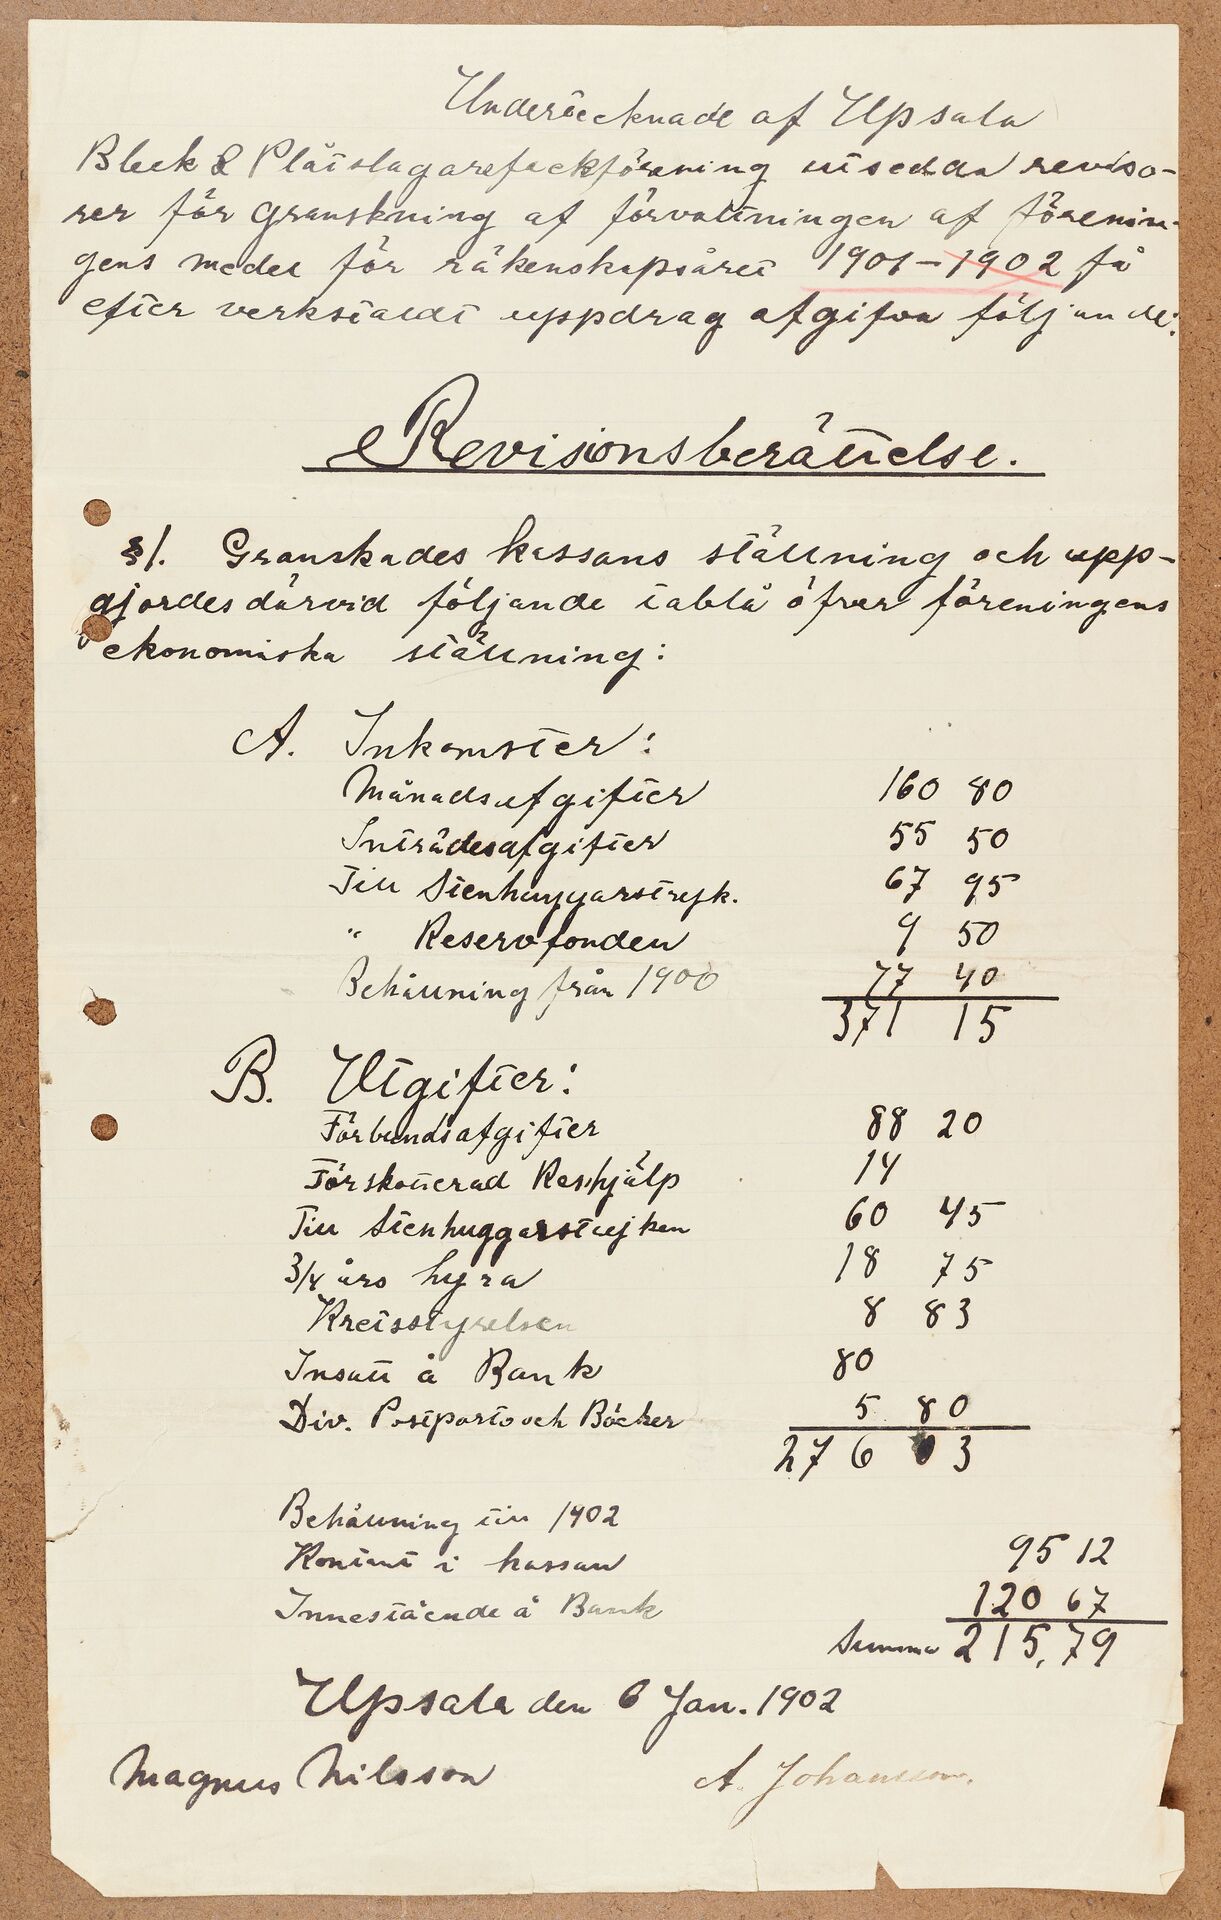 Undertecknade af Upsala
Bleck & Plåtslagarefackförening utsedda reviso-
rer för granskning af förvaltningen af förenin-
gens medel för räkenskapsåret 1901-1902 få
efter verkstäldt uppdrag afgifva följande:
Revisionsberättelse.
§1. Granskades kassans ställning och upp-
gjordes därvid följande tablå öfver föreningens
ekonomiska ställning:
A. Inkomster:
Månadsafgifter 160 80
Inträdesafgifter 55 50
Till Stenhuggarstrejk. 67 95
" Reservfonden 9 50
Behållning från 1900 77 40
371 15
B. Utgifter:
Förbundsafgifter 88 20
Förskotterad Reshjälp 14
Till Stenhuggarstrejken 60 45
3/4 års hyra 18 75
Kretsstyrelsen 8 83
Insatt å Bank 80
Div. Postporto och Böcker 5 80
276 03
Behållning till 1902
Kontant i kassan 95 12
Innestående å Bank 120 67
Summa 215,79
Upsala den 6 Jan. 1902
Magnus Nilsson A. Johansson.